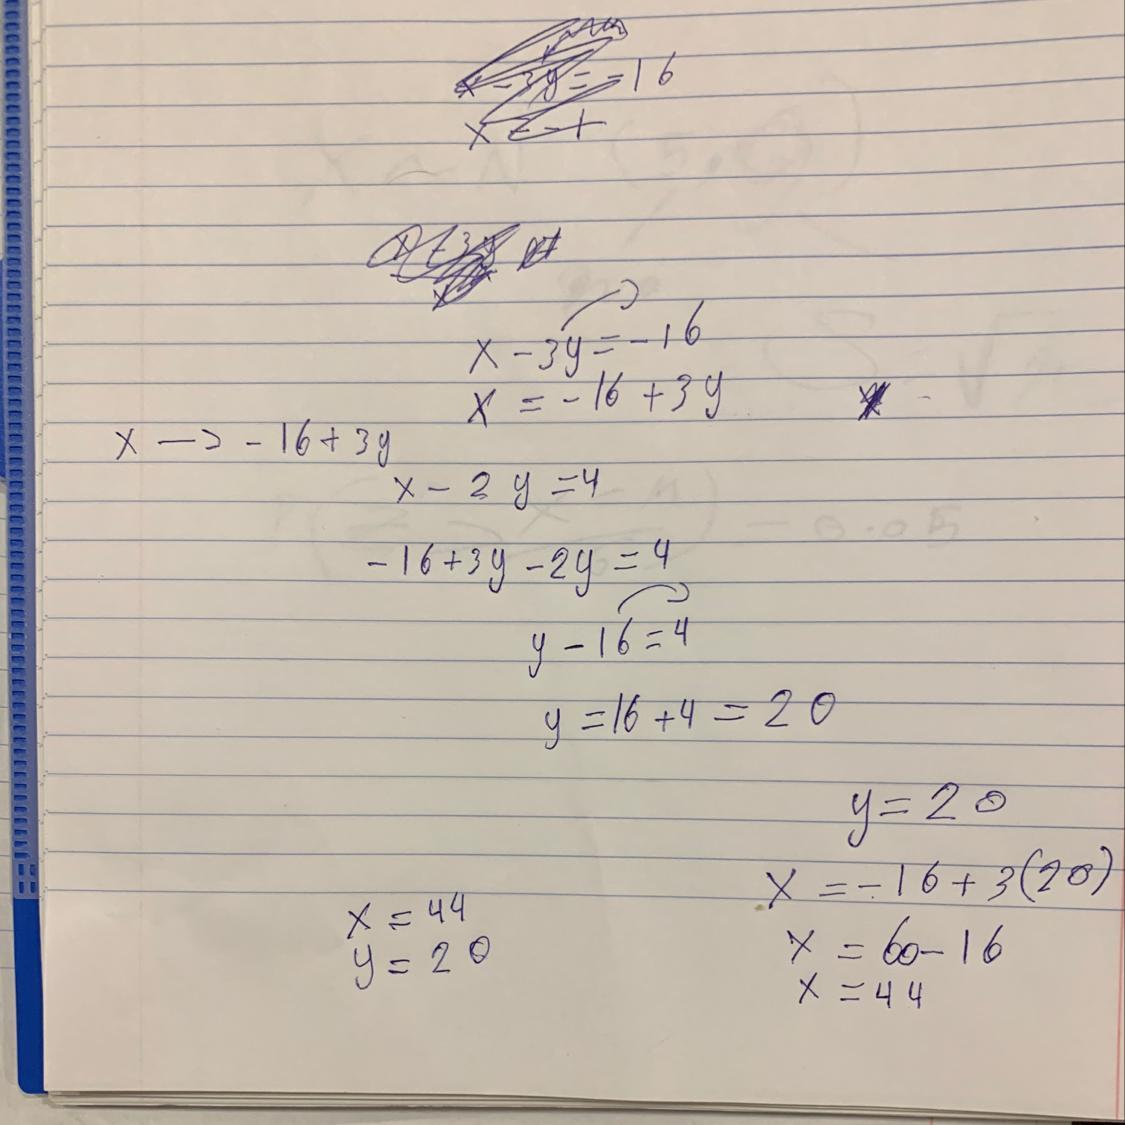 x - 3y = -16
x - 3y = -16
x = -16 + 3y
x -> -16 + 3y
x - 2y = 4
-16 + 3y - 2y = 4
y - 16 = 4
y = 16 + 4 = 20
y = 20
x = -16 + 3(20)
x = 60 - 16
x = 44
x = 44
y = 20